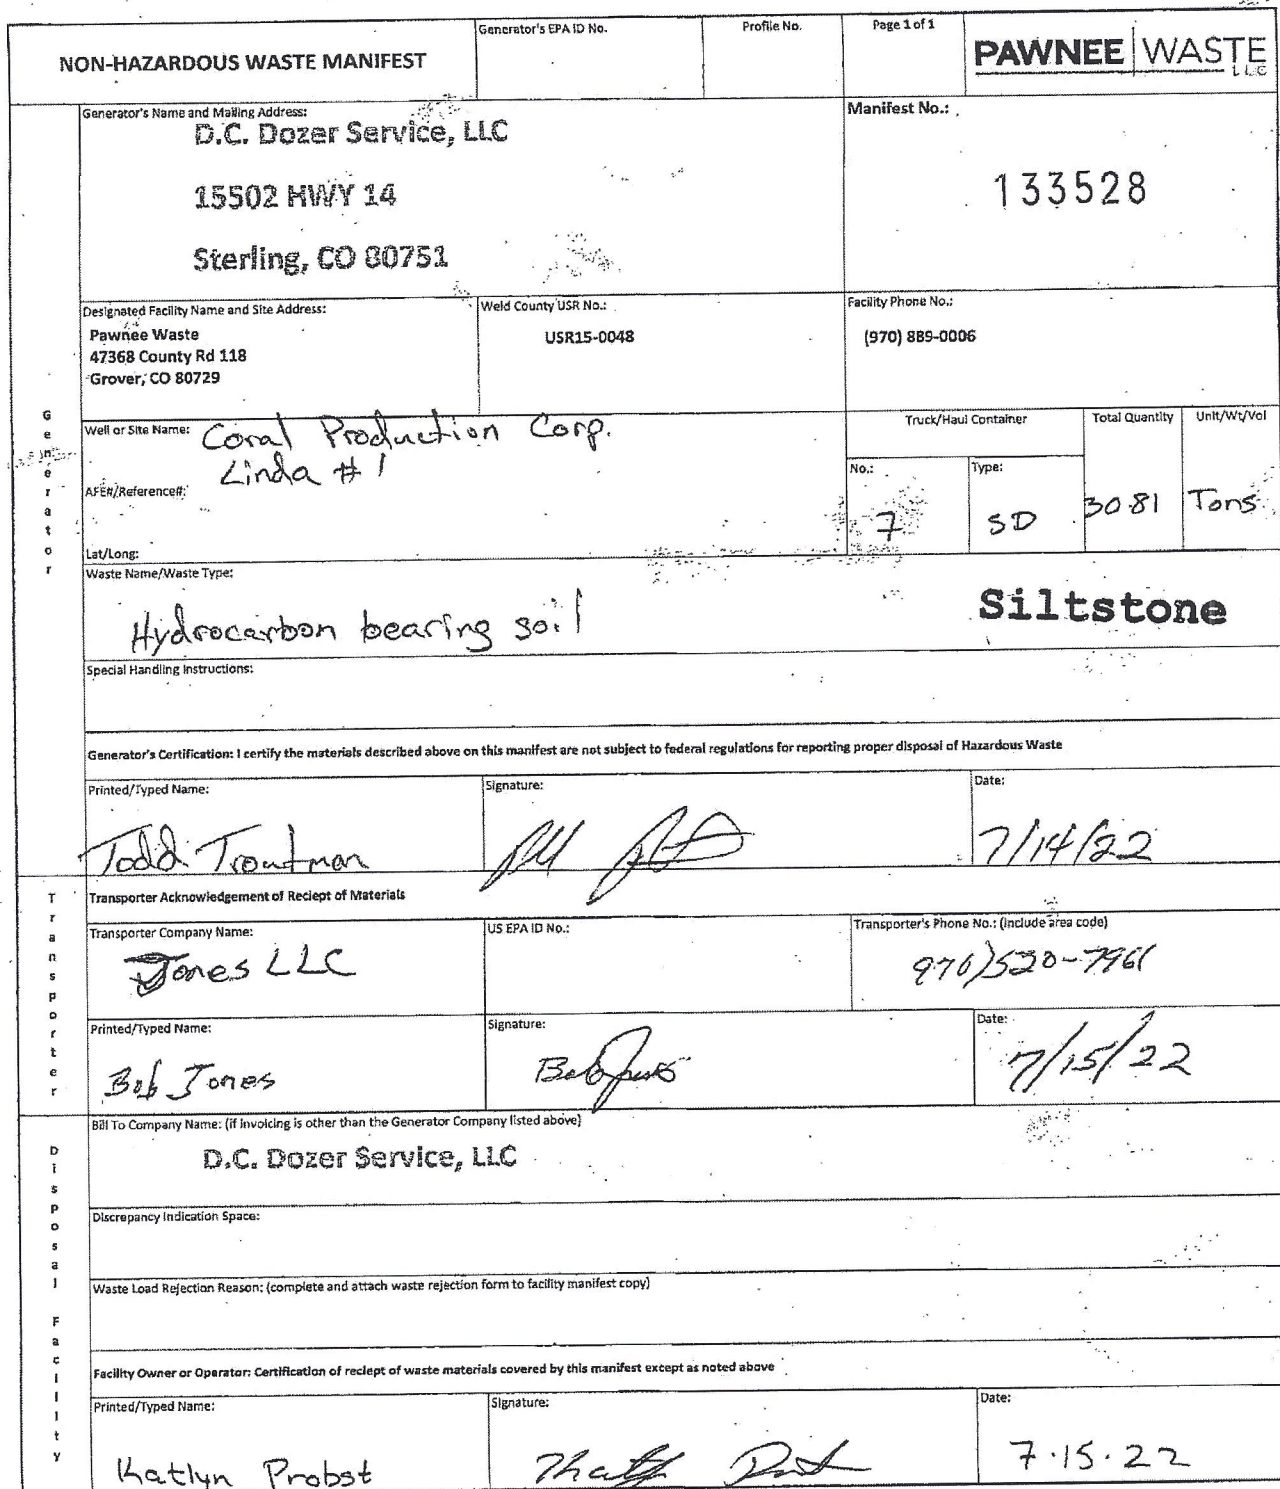 NON-HAZARDOUS WASTE MANIFEST
Generator's EPA ID No.
Profile No.
Page 1 of 1
PAWNEE WASTE
LLC
Generator's Name and Mailing Address:
D.C. Dozer Service, LLC
15502 HWY 14
Sterling, CO 80751
Manifest No.:
133528
Designated Facility Name and Site Address:
Pawnee Waste
47368 County Rd 118
Grover, CO 80729
Weld County USR No.:
USR15-0048
Facility Phone No.:
(970) 889-0006
Generator
Well or Site Name: Coral Production Corp.
Linda # 1
AFE#/Reference#:
Lat/Long:
Truck/Haul Container
No.:
7
Type:
SD
Total Quantity
30.81
Unit/Wt/Vol
Tons
Waste Name/Waste Type:
Hydrocarbon bearing soil
Siltstone
Special Handling Instructions:
Generator's Certification: I certify the materials described above on this manifest are not subject to federal regulations for reporting proper disposal of Hazardous Waste
Printed/Typed Name:
Todd Troutman
Signature:
Date:
7/14/22
Transporter
Transporter Acknowledgement of Reciept of Materials
Transporter Company Name:
Jones LLC
US EPA ID No.:
Transporter's Phone No.: (include area code)
970)520-7961
Printed/Typed Name:
Bob Jones
Signature:
Bob Jones
Date:
7/15/22
Disposal Facility
Bill To Company Name: (if invoicing is other than the Generator Company listed above)
D.C. Dozer Service, LLC
Discrepancy Indication Space:
Waste Load Rejection Reason: (complete and attach waste rejection form to facility manifest copy)
Facility Owner or Operator: Certification of reciept of waste materials covered by this manifest except as noted above
Printed/Typed Name:
Katlyn Probst
Signature:
Date:
7.15.22